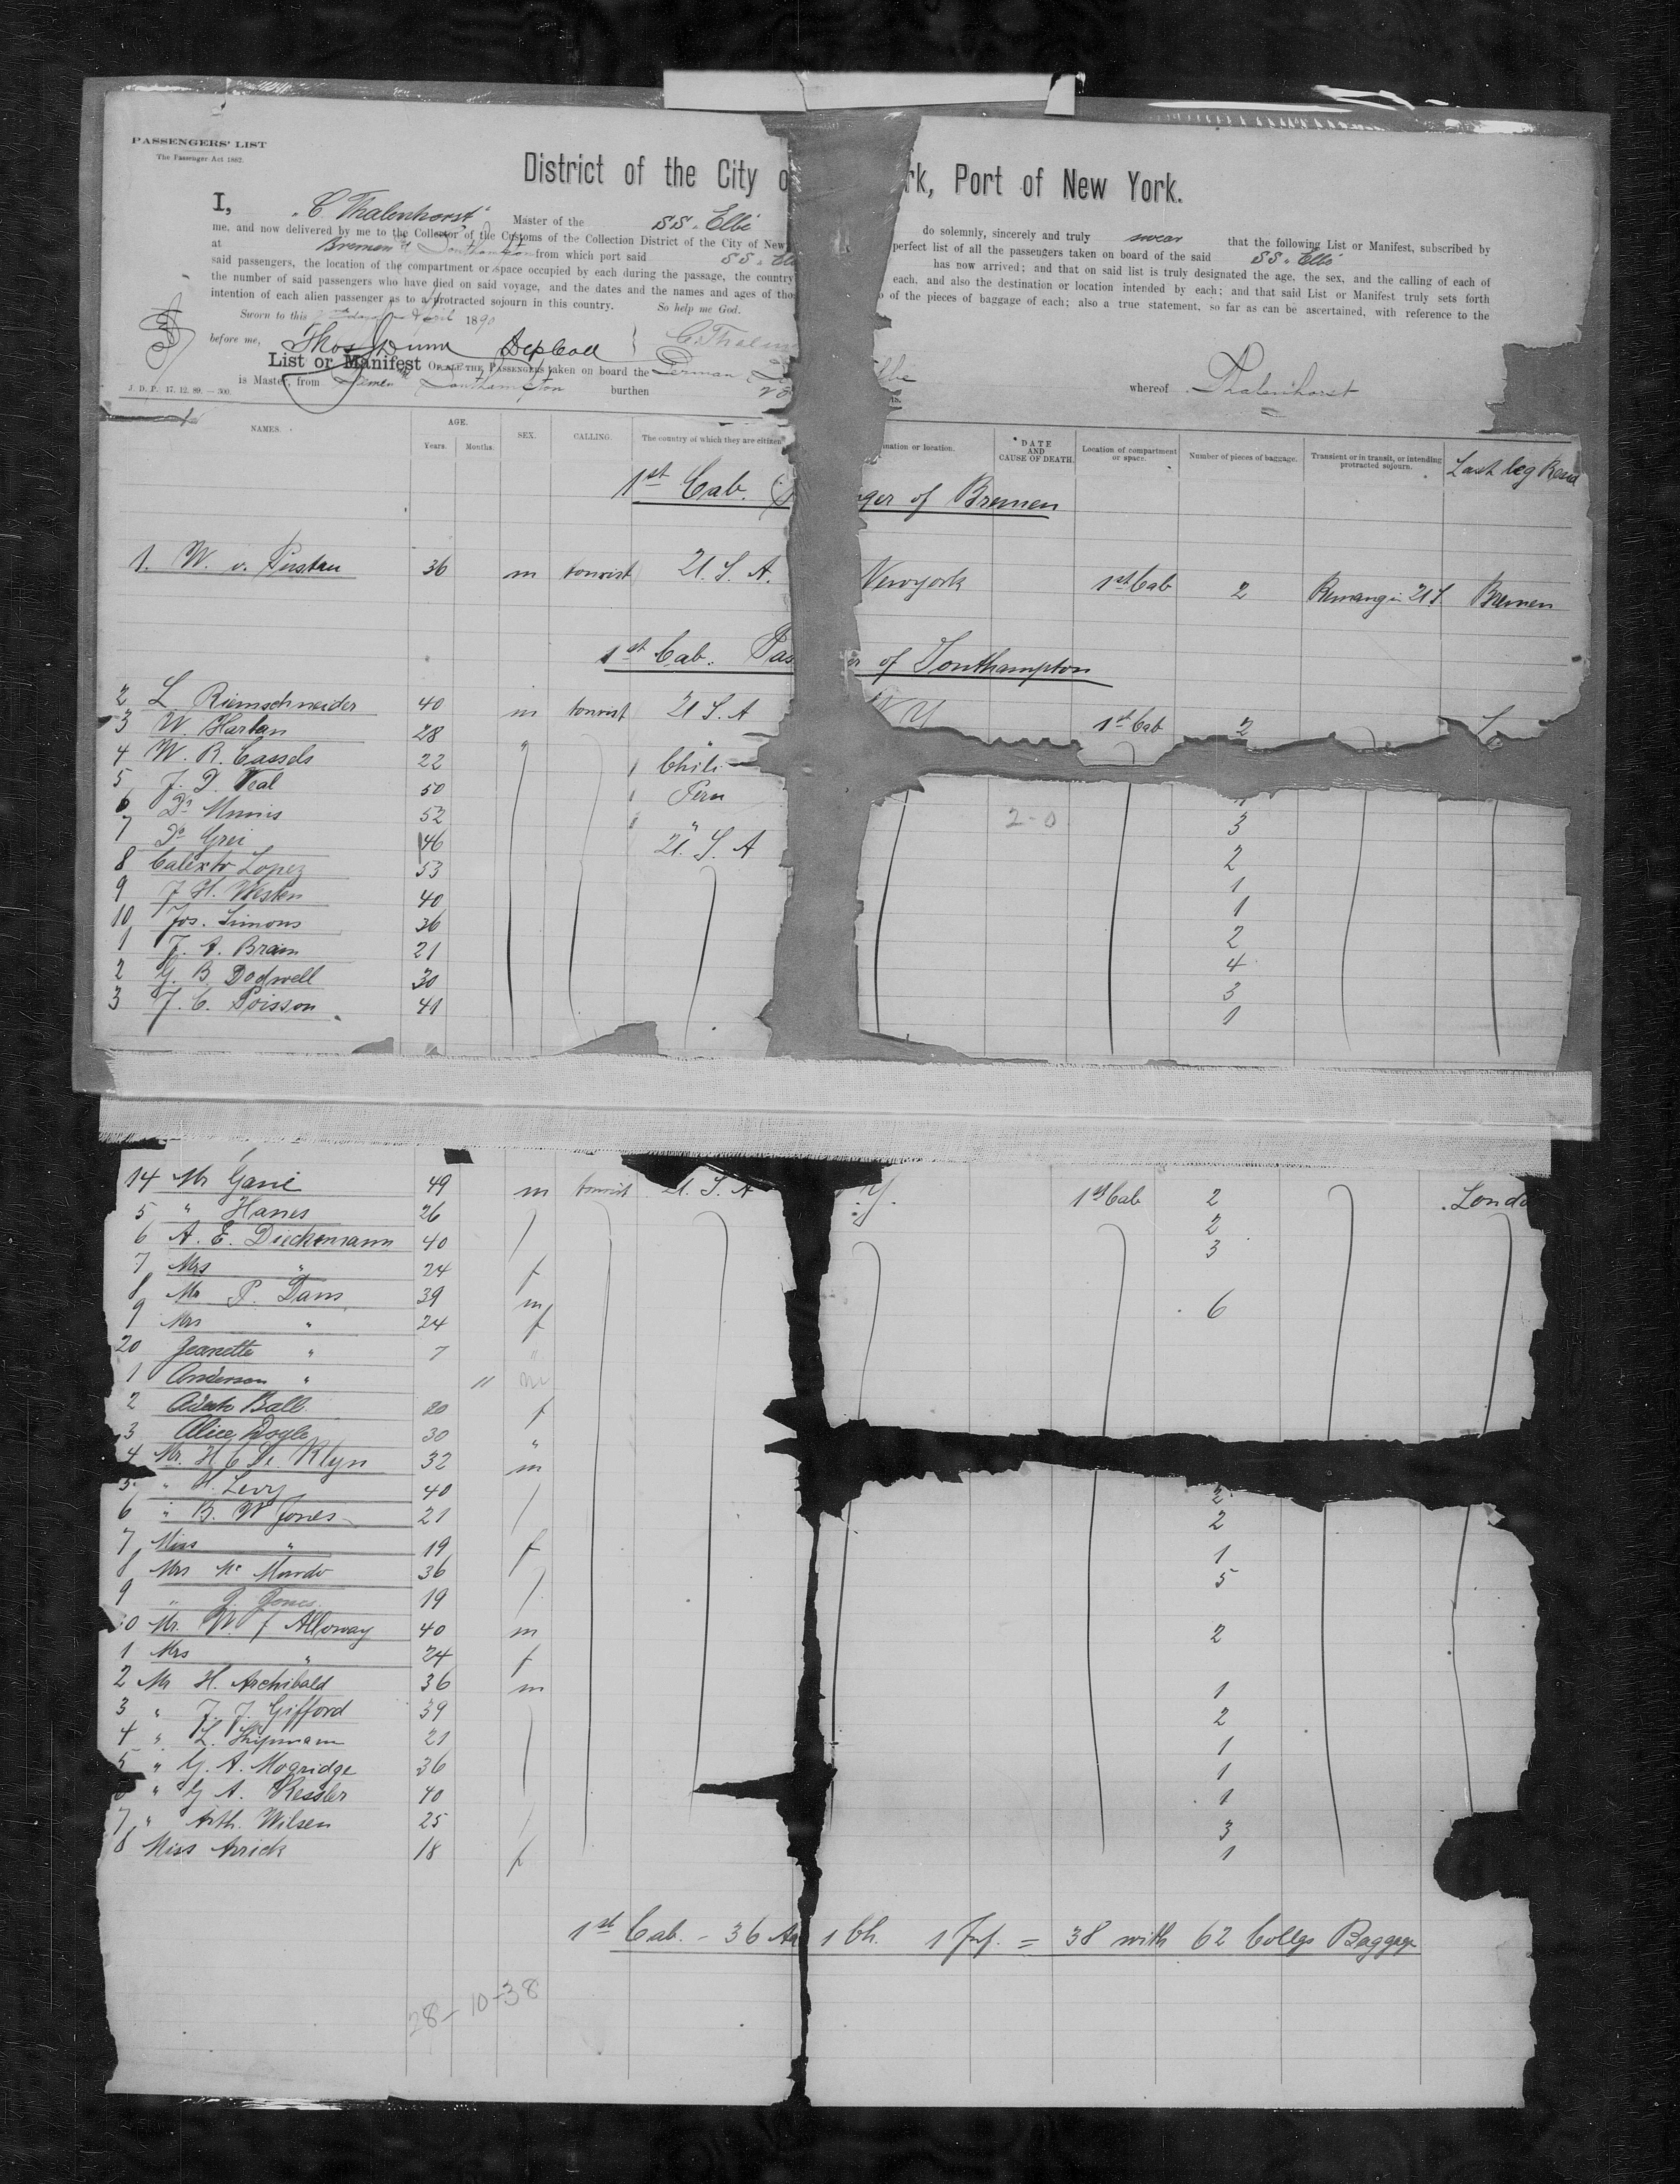 PASSENGERS' LIST
The Passenger Act 1882.
District of the City o rk, Port of New York.
I, "C. Thalenhorst" Master of the SS. Elbe do solemnly, sincerely and truly swear that the following List or Manifest, subscribed by
me, and now delivered by me to the Collector of the Customs of the Collection District of the City of New perfect list of all the passengers taken on board of the said SS. Elbe
at Bremen & Southampton from which port said SS. Elb has now arrived; and that on said list is truly designated the age, the sex, and the calling of each of
said passengers, the location of the compartment or space occupied by each during the passage, the country each, and also the destination or location intended by each; and that said List or Manifest truly sets forth
the number of said passengers who have died on said voyage, and the dates and the names and ages of thos of the pieces of baggage of each; also a true statement, so far as can be ascertained, with reference to the
intention of each alien passenger as to a protracted sojourn in this country. So help me God.
Sworn to this April 1890
before me, Thos Dunn Dep Coll } C. Thalen
List or Manifest OF ALL THE PASSENGERS taken on board the German lbe whereof Thalenhorst
is Master, from Bremen & Southampton burthen
J. D. P. 17. 12. 89. — 300.
NAMES. AGE. Years. Months. SEX. CALLING. The country of which they are citizen nation or location. DATE AND CAUSE OF DEATH. Location of compartment or space. Number of pieces of baggage. Transient or in transit, or intending protracted sojourn. Last leg Resid
1st Cab. nger of Bremen
1. W. v. Pustau 36 m tourist U. S. A. Newyork 1st Cab 2 Bremen
1st Cab. Pas er of Southampton
2 L Riemschneider 40 m tourist U S. A N Y 1st Cab 2 L
3 W. Harlan 28 "
4 W. R. Cassels 22 Chili
5 J. D. Veal 50 Peru
6 Dr Munis 52 " 3
7 Dr Grei 46 U. S. A 2
8 Calixto Lopez 53 1
9 J H. Westen 40 1
10 Jos. Simons 36 2
1 J. A. Brain 21 4
2 G. B Dodwell 30 3
3 J. C. Poisson 41 1
2-0
14 Mr Gané 49 m tourist U. S. A Y. 1st Cab 2 Londo
5 " Hanes 26 2
6 A. E. Dieckmann 40 3
7 Mrs " 24 f
8 Mr P. Dam 39 m 6
9 Mrs " 24 f
20 Jeanette " 7 "
1 Anderson " 11 m
2 Ball 20 f
3 Alice Doyle 30 "
4 Mr. H C De Klyn 32 m
5 " H. Levy 40 2
6 " B. W Jones 21 2
7 Miss " 19 f 1
8 Mrs Mc Murdo 36 5
9 " J. Jones. 19
0 Mr. W. J Alloway 40 m 2
1 Mrs " 24 f
2 Mr H. Archibald 36 m 1
3 " J. J. Gifford 39 2
4 " L. Shipmann 21 1
5 " G. A. Mogridge 36 1
" G A. Kessler 40 1
7 " Arth. Wilsen 25 3
8 Miss Arrick 18 f 1
1st Cab. - 36 Ad 1 Ch. 1 Inf. = 38 with 62 Collys Baggage
28-10-38